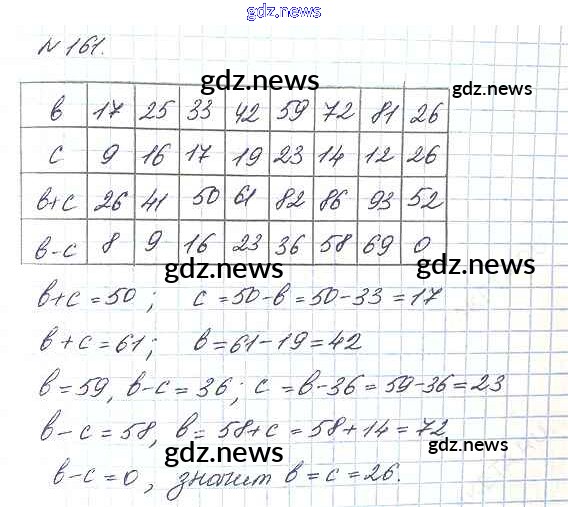 gdz.news
N 161.
gdz.news
gdz.news
в 17 25 33 42 59 72 81 26
с 9 16 17 19 23 14 12 26
gdz.news
в+с 26 41 50 61 82 86 93 52
в-с 8 9 16 23 36 58 69 0
gdz.news
gdz.news
в+с = 50 ; с = 50-в = 50-33 = 17
в + с = 61; в = 61-19 = 42
gdz.news
в = 59, в-с = 36; с = в-36 = 59-36 = 23
в - с = 58, в = 58+с = 58+14 = 72
gdz.news
gdz.news
в-с = 0, значит в = с = 26.